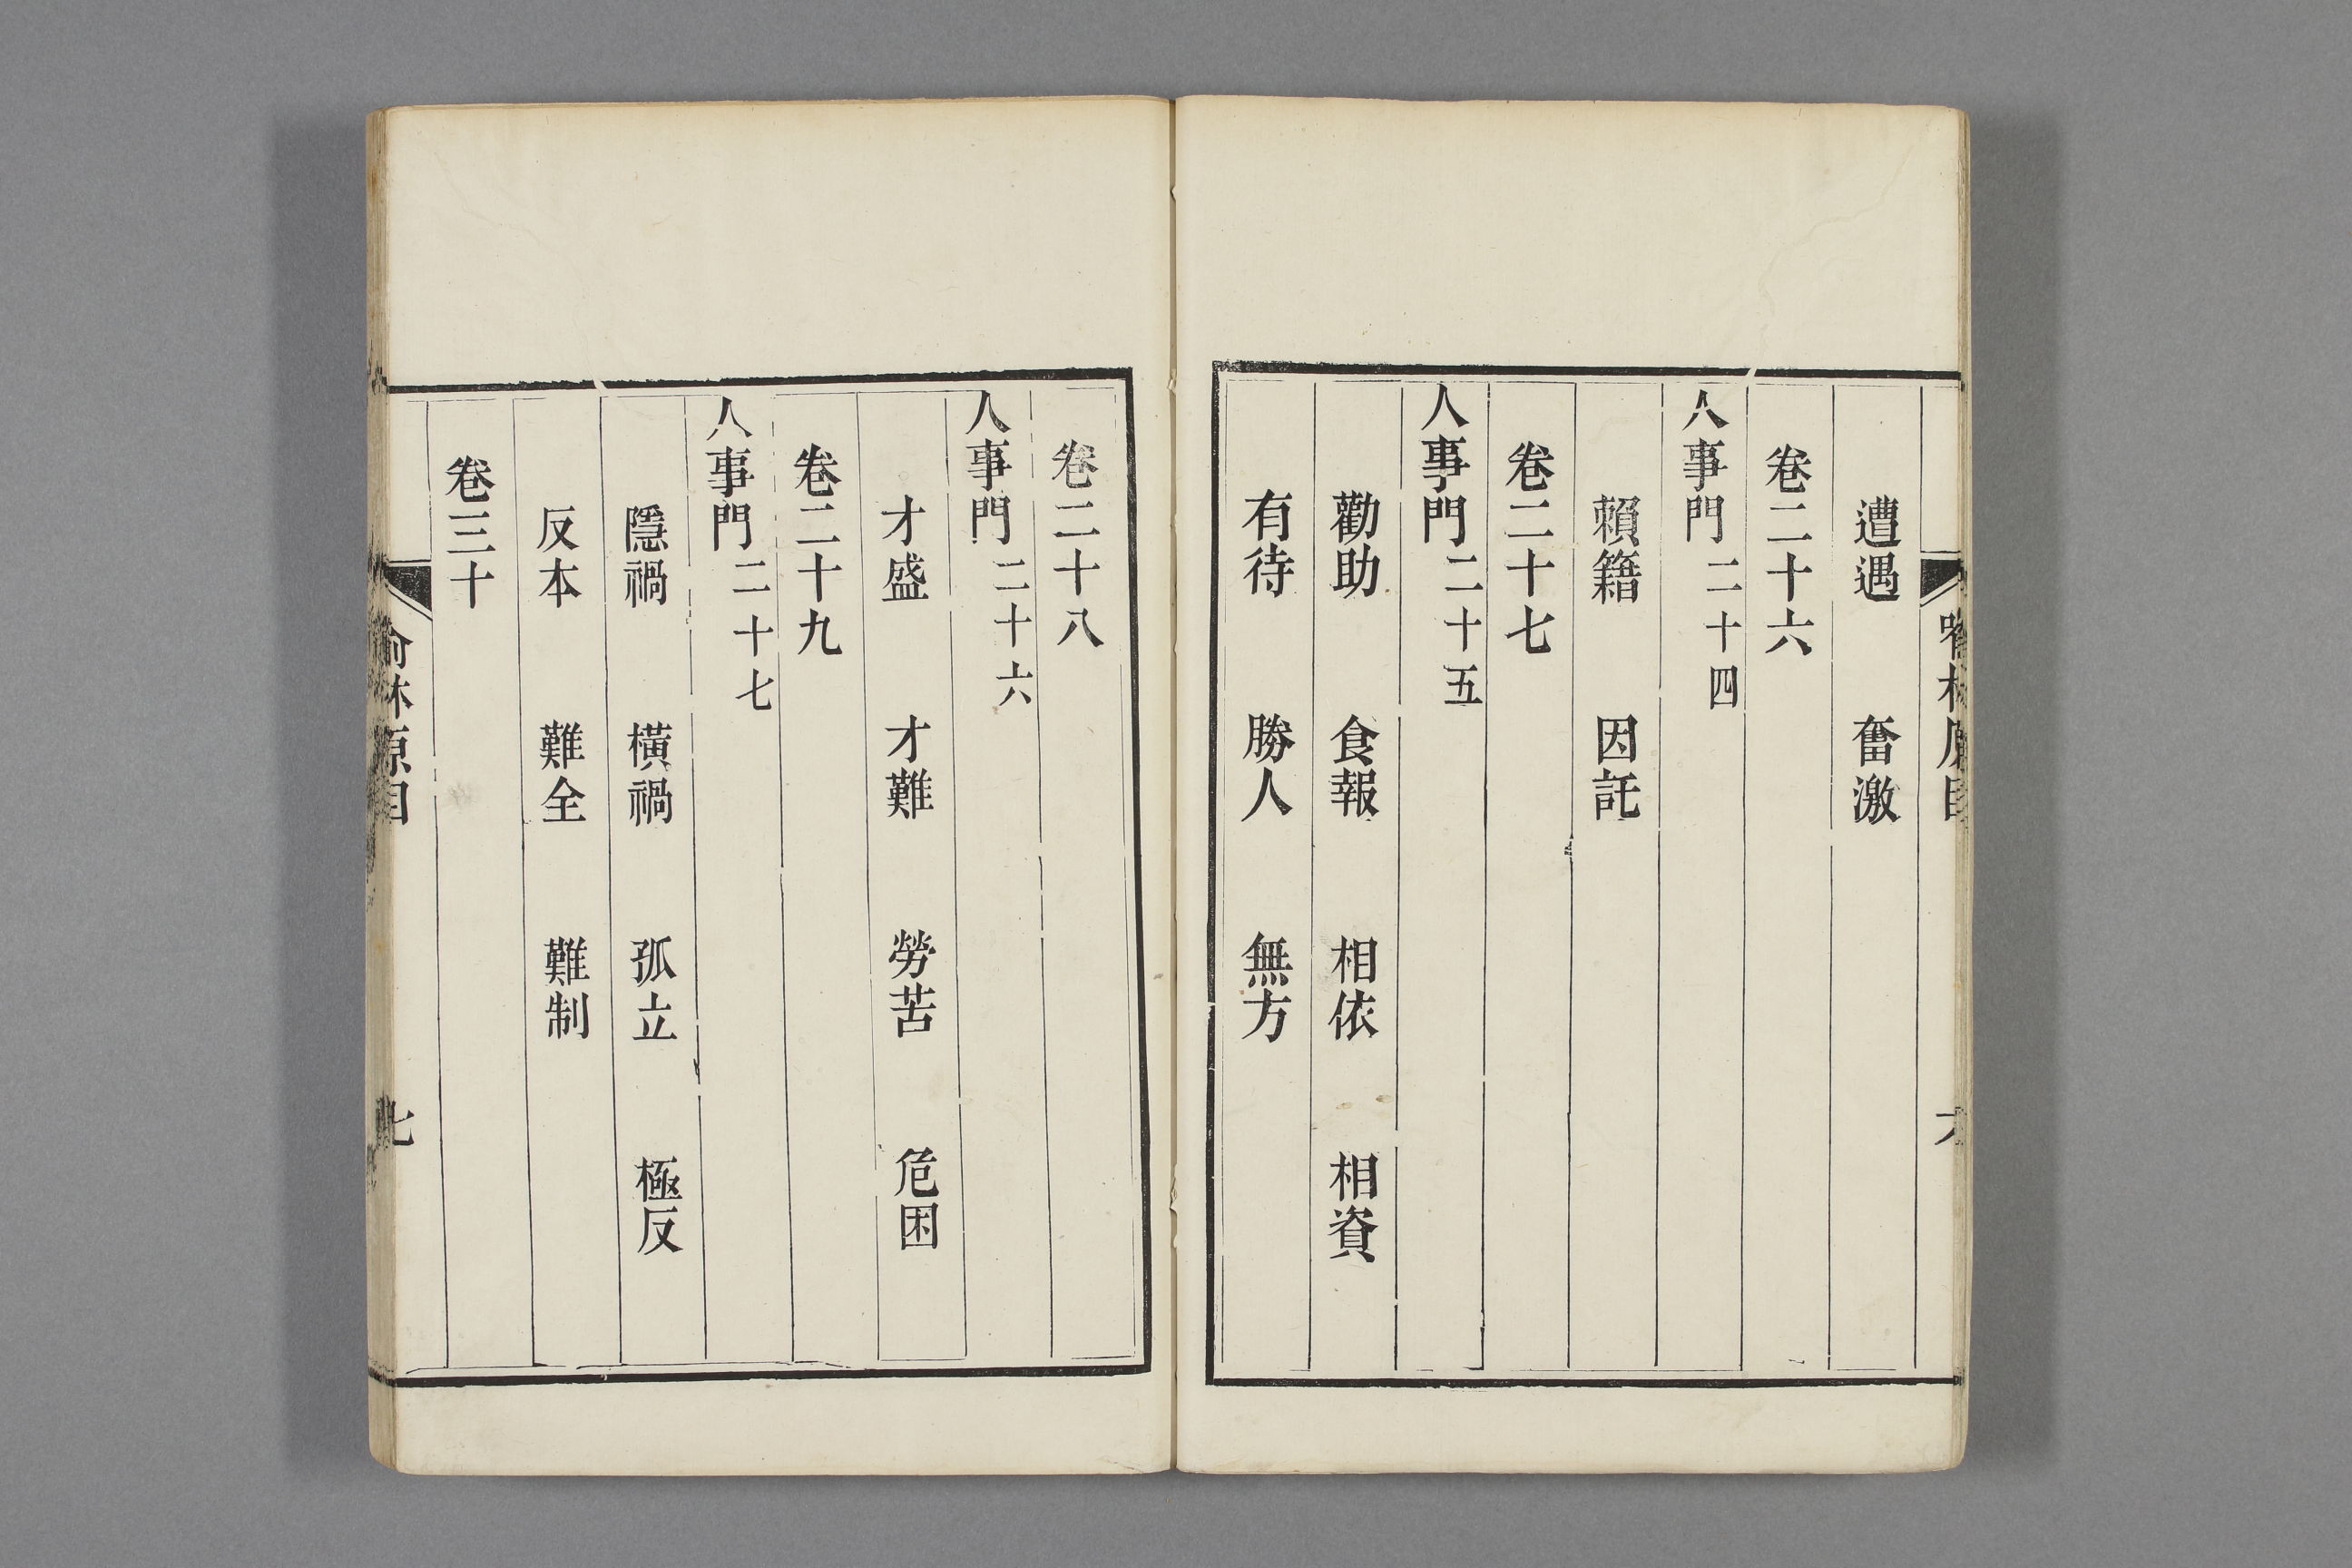 遭遇 奮激
卷二十六
人事門二十四
賴籍 因託
卷二十七
人事門二十五
勸助 食報 相依 相資
有待 勝人 無方
卷二十八
人事門二十六
才盛 才難 勞苦 危困
卷二十九
人事門二十七
隱禍 橫禍 孤立 極反
反本 難全 難制
卷三十
林原目 七